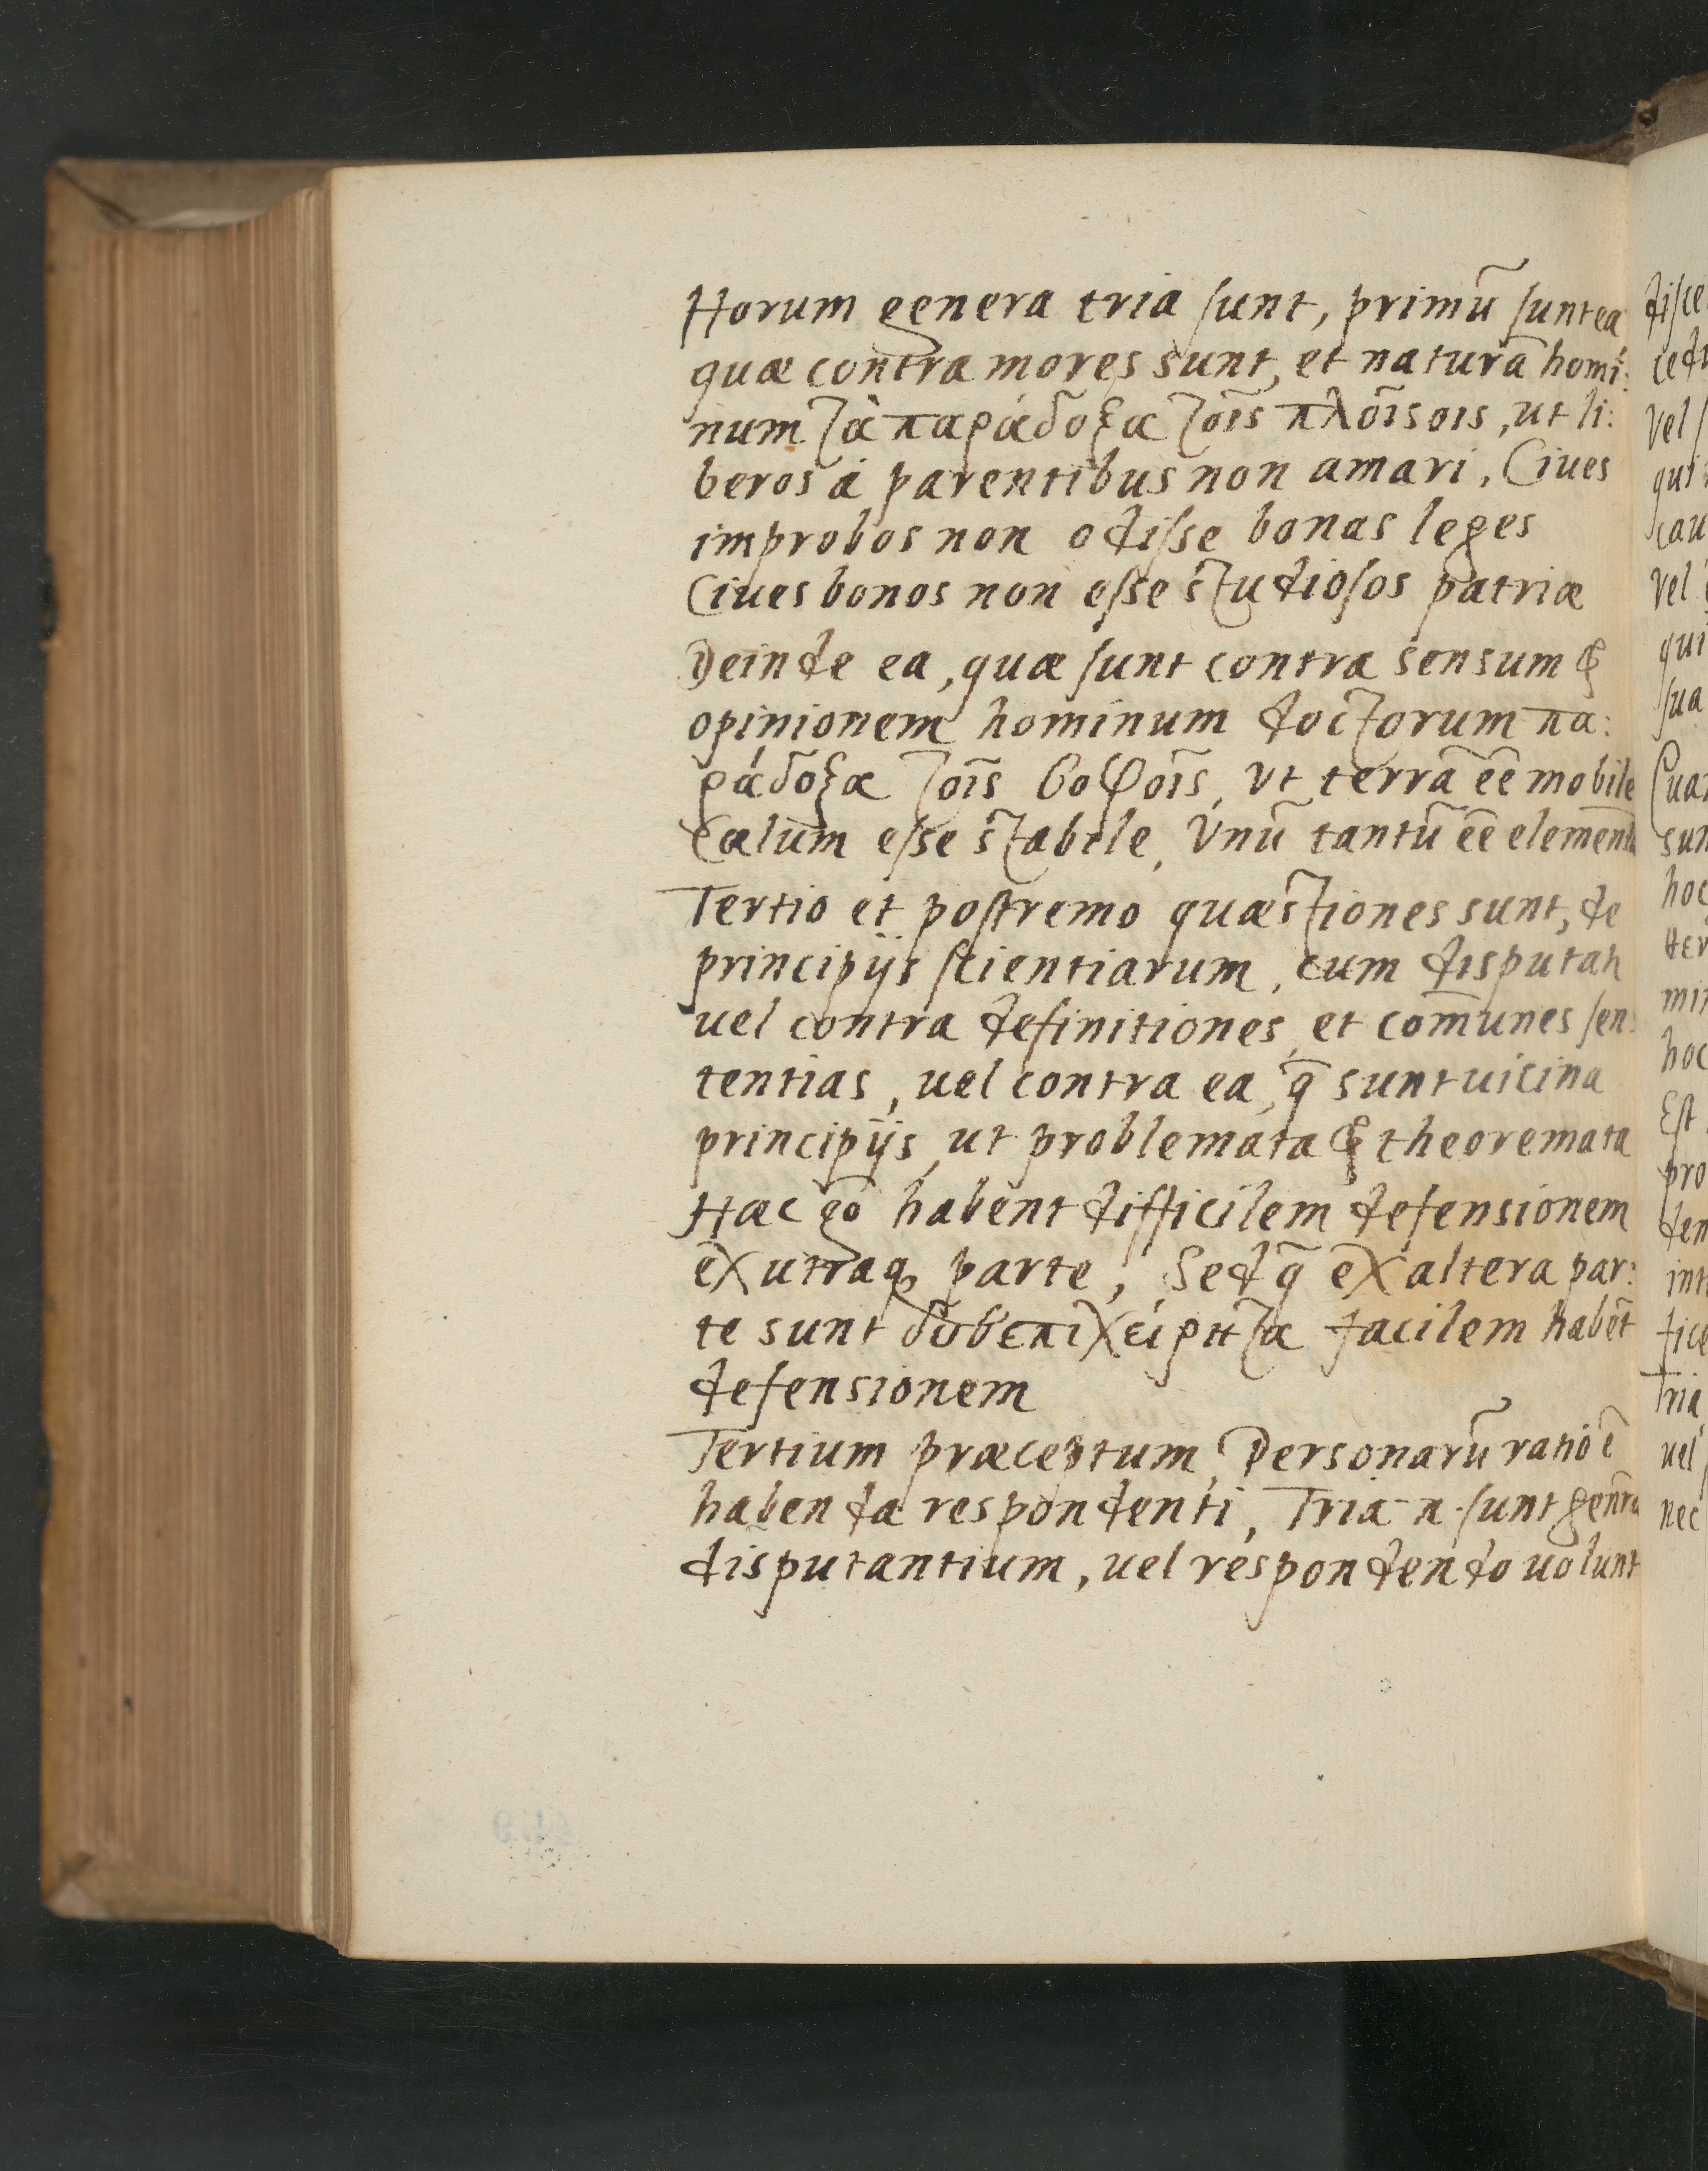 Horum genera tria sunt, primũ sunt ea
quæ contra mores sunt, et naturã homi:
num τὰ παράδοξα τοῖς πλοῖσοις, ut li:
beros á parentibus non amari, Ciues
improbos non odisse bonas leges
Ciues bonos non esse studiosos patriæ
Deinde ea, quæ sunt contra sensum &
opinionem hominum doctorum πα:
ράδοξα τοῖς σοφοῖς, vt terrã eē mobilē
Cælum esse stabile, Vnũ tantũ eē element
Tertio et postremo quæstiones sunt, de
principijs scientiarum, cum disputat
uel contra definitiones, et com̄unes sen:
tentias, uel contra ea, q̄ sunt uicina
principijs, ut problemata & theoremata
Hæc gõ habent difficilem defensionem
ex utraq; parte, Sed q̄ ex altera par:
te sunt δυσεπιχείρητα facilem habẽt
defensionem
Tertium præceptum, Personarũ ratio ē
habenda respondenti, Tria n. sunt genera
disputantium, uel respondendo uolunt
disce
cedu
vel
qui
cau
vel
qui
sua
sun
hoc
min
hoc
Est
pro
den
int
fice
Tria
uel
nec